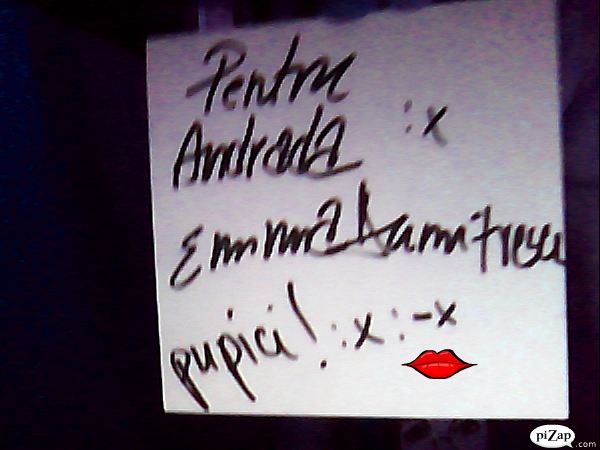 Pentru
Andrada :x
Emma Dumitrescu
pupici! :x :-x
piZap.com